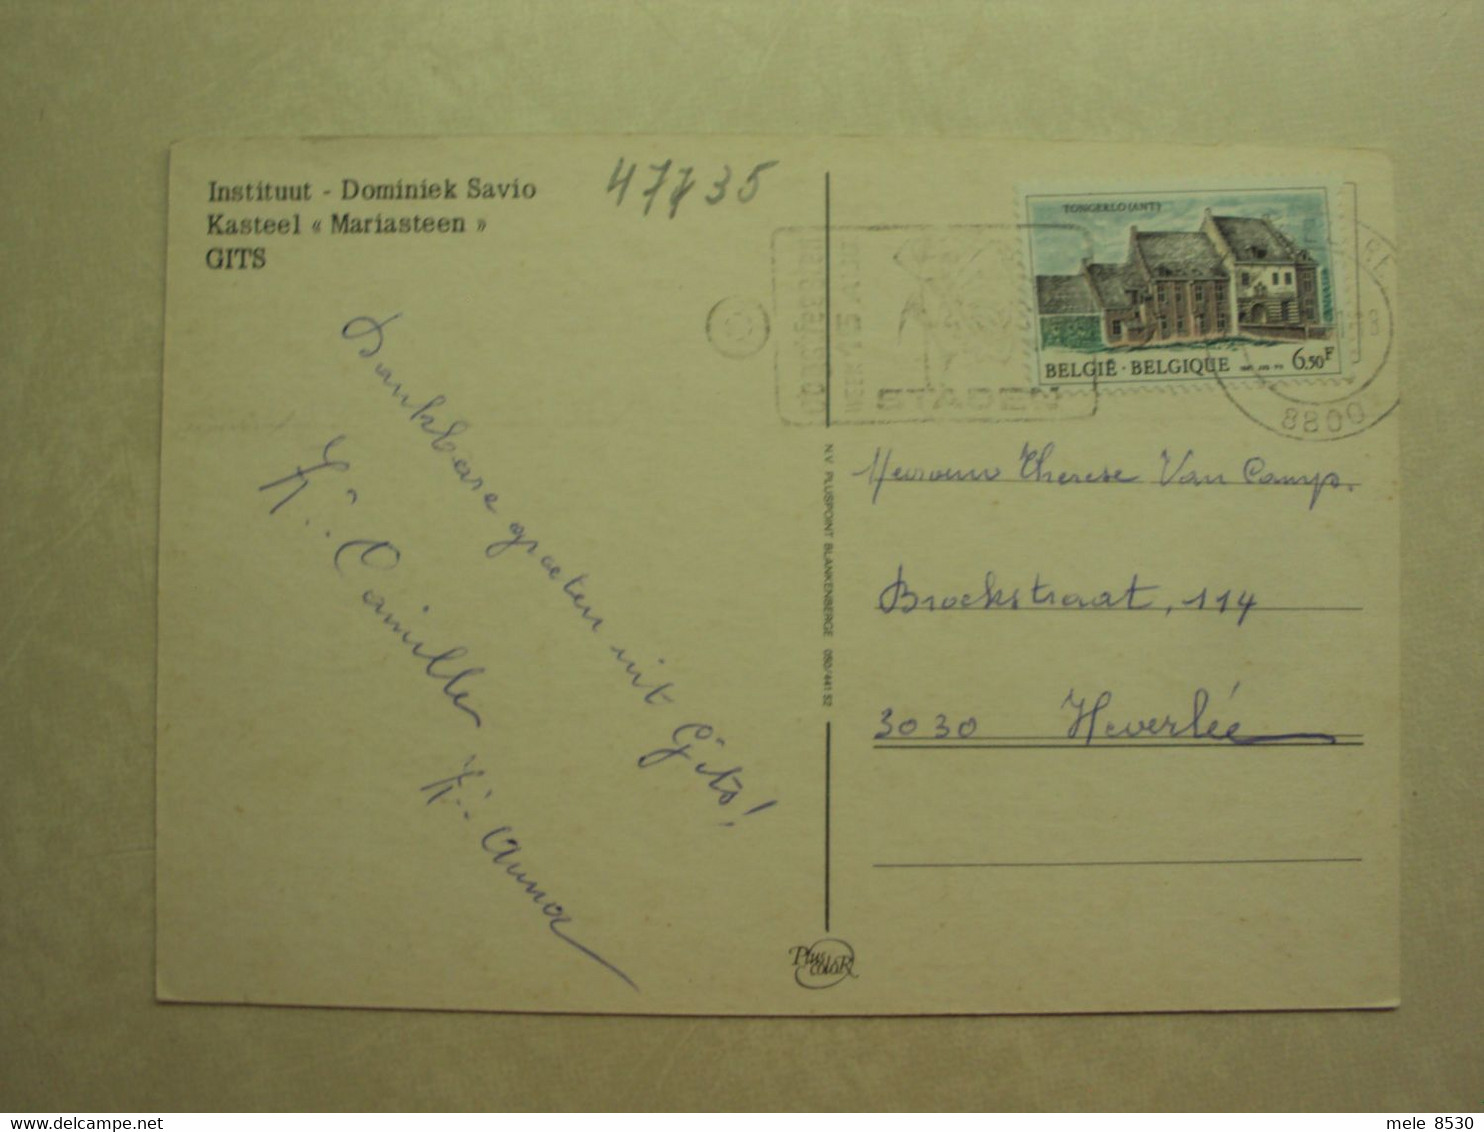 Instituut - Dominiek Savio
Kasteel « Mariasteen »
GITS
47735
TONGERLO (ANT)
BELGIË · BELGIQUE
6.50F
STADEN
8800
Dankbare groeten uit Gits!
Zr. Camille
Zr. Anna
NV PLUSPOINT BLANKENBERGE 050/441 52
Mevrouw Therese Van Camp.
Broekstraat, 114
3030 Heverlée
Plus
coloR
mele 8530